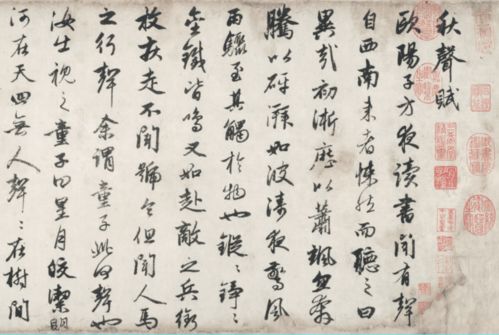 秋聲賦
歐陽子方夜讀書聞有聲
自西南来者悚然而聽之曰
異哉初淅瀝以蕭颯忽奔
騰以砰湃如波濤夜驚風
雨驟至其觸於物也鏦〻錚〻
金鐵皆鳴又如赴敵之兵銜
枚疾走不聞號令但聞人馬
之行聲余謂童子此何聲也
汝出視之童子曰星月皎潔明
河在天四無人聲〻在樹間